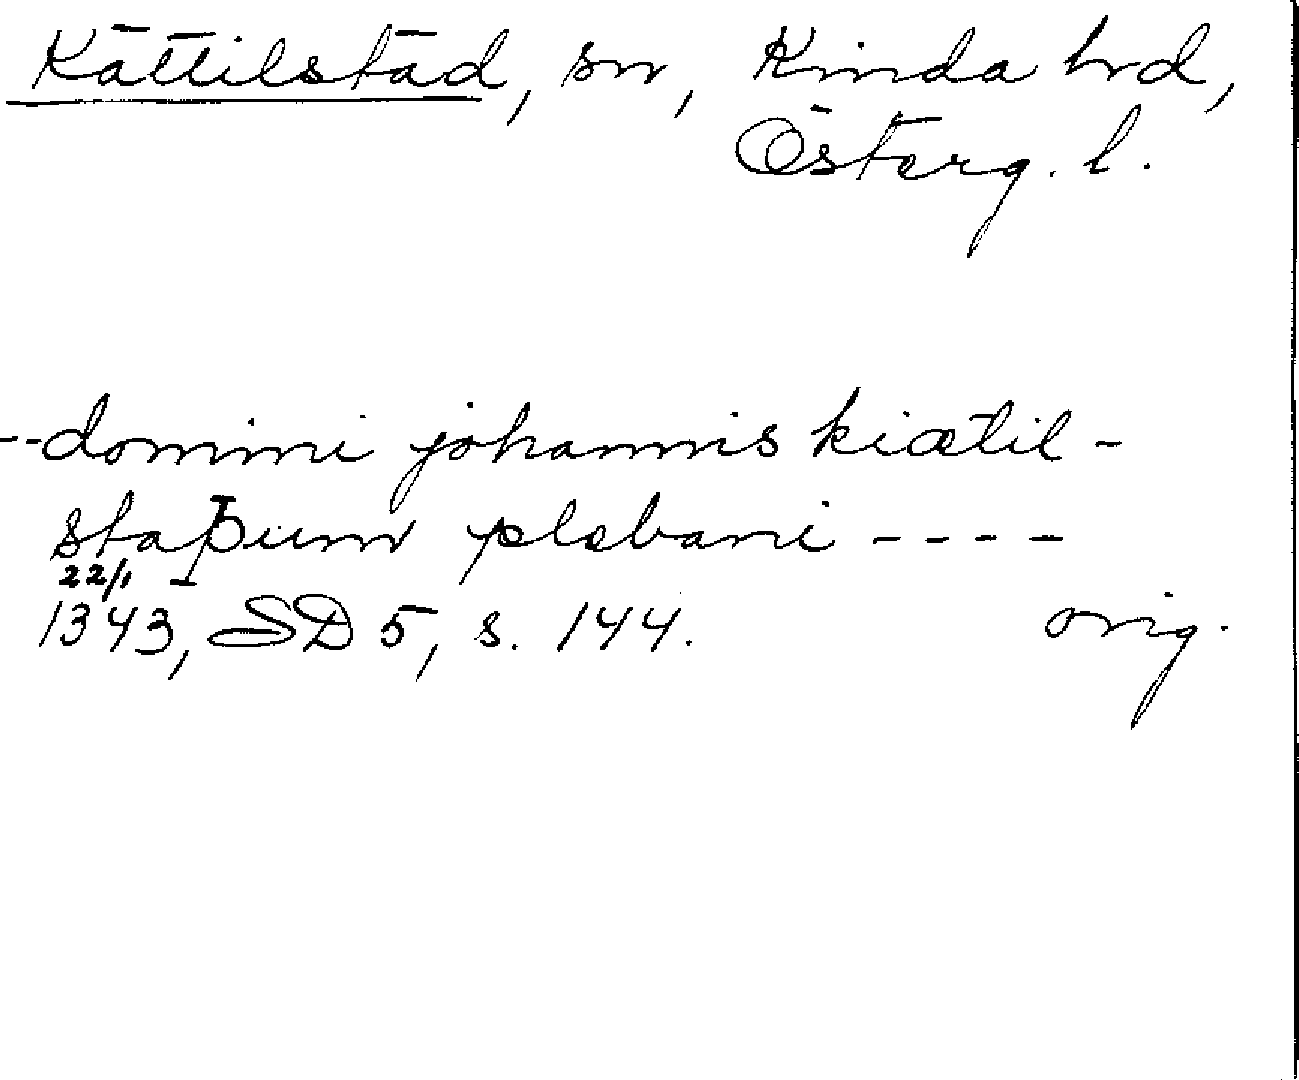 Kättilstad, sn, Kinda hrd,
Österg. l.
--domini johannis kiætil-
staþum plebani ----
22/1
1343, SD 5, s. 144. orig.